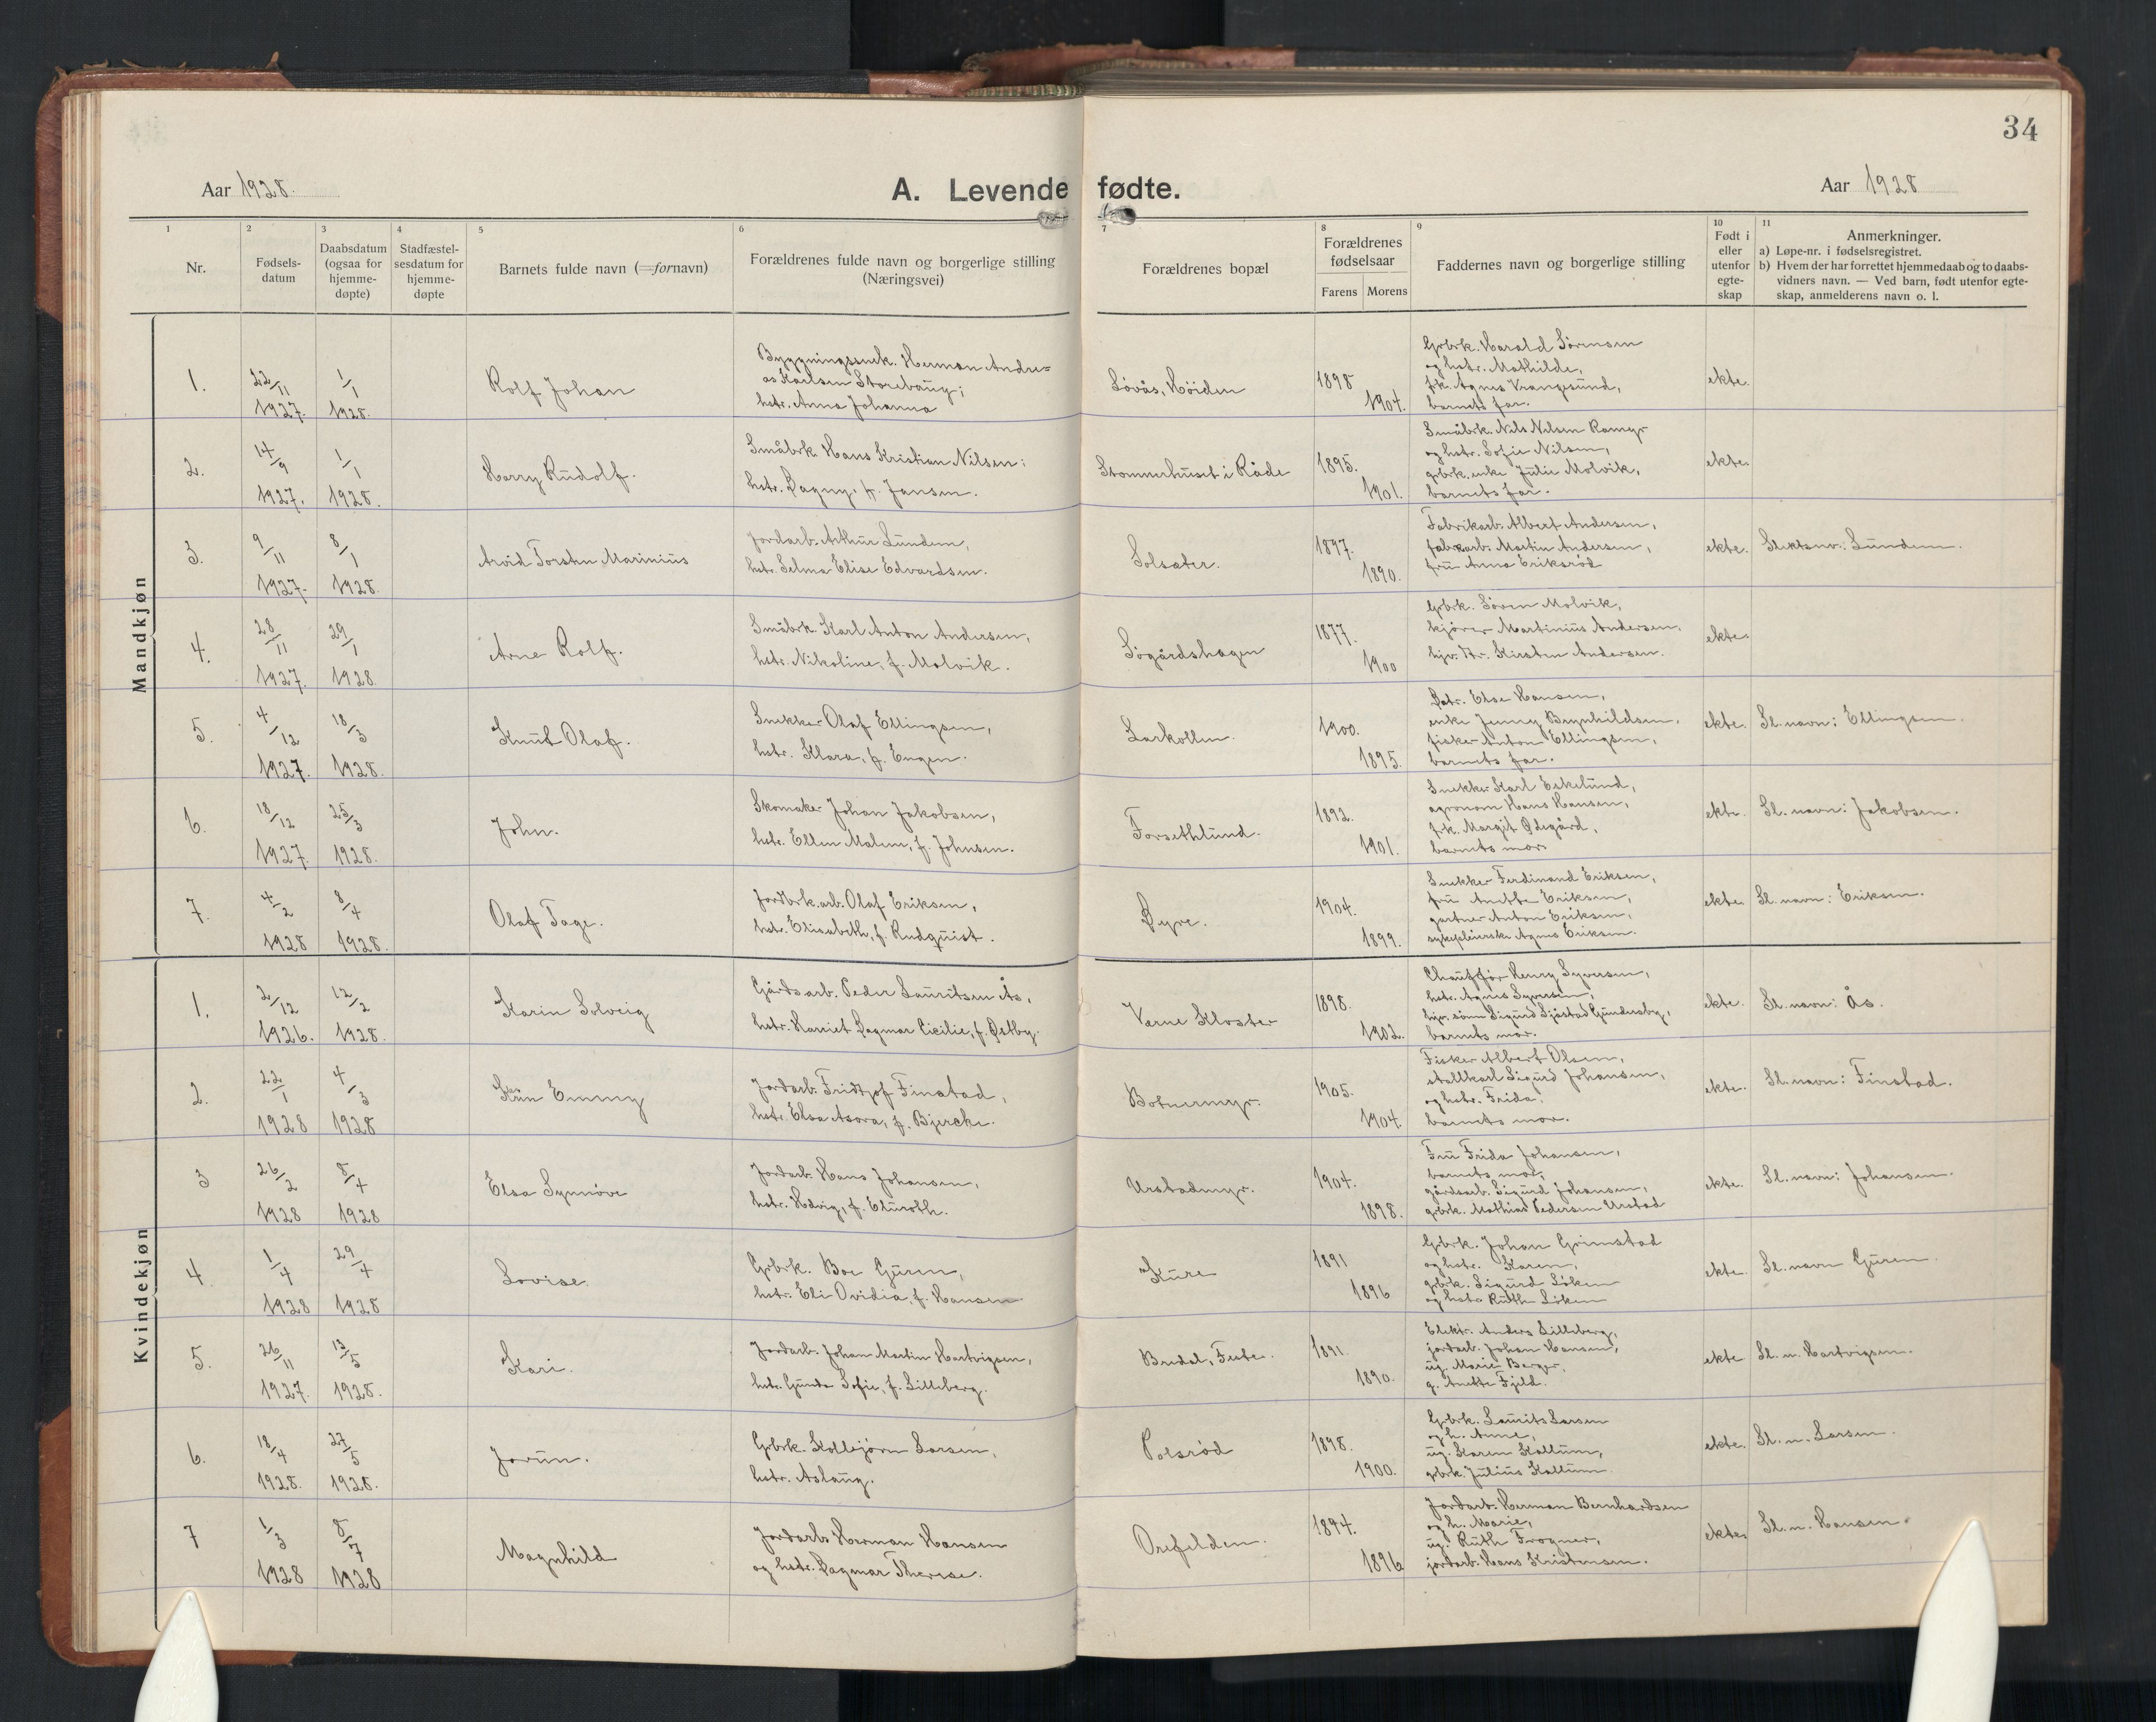 34
Aar 1928.
A. Levende fødte.
Aar 1928
1
Nr.
2
Fødsels-
datum
3
Daabsdatum
(ogsaa for
hjemme-
døpte)
4
Stadfæstel-
sesdatum for
hjemme-
døpte
5
Barnets fulde navn (=fornavn)
6
Forældrenes fulde navn og borgerlige stilling
(Næringsvei)
7
Forældrenes bopæl
8
Forældrenes
fødselsaar
Farens Morens
9
Faddernes navn og borgerlige stilling
10
Født i
eller
utenfor
egte-
skap
11
Anmerkninger.
a) Løpe-nr. i fødselsregistret.
b) Hvem der har forrettet hjemmedaab og to daabs-
vidners navn. — Ved barn, født utenfor egte-
skap, anmelderens navn o. l.
Mandkjøn
1.
22/11
1927.
1/1
1928.
Rolf Johan
Byggningssnek. Herman Andre=
as Karlsen Storebaug;
hstr. Anna Johanna
Løvås, Høiden
1898
1904.
Grbrk. Harald Sørensen
og hstr. Mathilde,
frk. Agnes Vrangesund,
barnets far.
ekte.
2.
14/9
1927.
1/1
1928.
Harry Rudolf.
Småbrk. Hans Kristian Nilsen;
hstr. Dagny, f. Jansen.
Strommerhuset i Råde
1895.
1901.
Småbrk. Nils Nilsen
og hstr. Sofie Nilsen,
grbrk. enke Julie Molvik,
barnets far.
ekte.
3.
9/11
1927.
8/1
1928.
Arvid Torsten Marinius
Jordarb. Arthur Lundem,
hstr. Selma Elise Edvardsen.
Solsæter.
1897.
1890.
Fabrikarb. Albert Andersen,
fabrarb. Martin Andersen,
fru Anna Eriksrød
ekte.
Slektsnv.: Lundem.
4.
28/11
1927.
29/1
1928.
Arne Rolf.
Småbrk. Karl Anton Andersen,
hstr. Nikoline, f. Molvik.
Søgårdshagen
1877.
1900
Grbrk. Søren Molvik,
kjører Martinius Andersen,
hjv. dtr. Kirsten Andersen.
ekte.
5.
4/12
1927.
18/3
1928.
Knut Olaf.
Snekker Olaf Ellingsen,
hstr. Klara, f. Engen.
Larkollen.
1900.
1895.
Dtr. Else Hansen,
enke Jenny Brynhildsen,
fisker Anton Ellingsen,
barnets far.
ekte.
Sl. navn: Ellingsen.
6.
18/12
1927.
25/3
1928.
John.
Skomaker Johan Jakobsen,
hstr. Ellen Malene, f. Johnsen.
Forsethlund.
1892.
1901.
Snekker Karl Eskelund,
agronom Hans Hansen,
frk. Margit Ødegård,
barnets mor
ekte.
Sl. navn: Jakobsen.
7.
4/2
1928
8/4
1928.
Olaf Tage.
Jordbrk.arb. Olaf Eriksen,
hstr. Elisabeth, f. Rudquist.
Dyre.
1904.
1899.
Snekker Ferdinand Eriksen,
fru Anette Eriksen,
gartner Anton Eriksen,
sykepleierske Agnes Eriksen.
ekte.
Sl. navn: Eriksen.
Kvindekjøn
1.
2/12
1926.
12/2
1928.
Karin Solveig
Gårdsarb. Peder Lauritsen Ås,
hstr. Harriet Dagmar Cicilie, f. Østby.
Værne Kloster
1898.
1902.
Chauffør Henry Syversen,
hstr. Agnes Syversen,
hjv. sønn Sigurd Sjøstad Gundersby,
barnets mor.
ekte.
Sl. navn: Ås.
2.
22/1
1928
4/3
1928
Emmy
Jordarb. Fridtjof Finstad,
hstr. Elsa Asora, f. Bjercke.
Botnermyr.
1905.
1904.
Fisker Albert Olsen,
stallkarl Sigurd Johansen,
og hstr. Frida,
barnets mor.
ekte.
Sl. navn: Finstad.
3
26/2
1928
8/4
1928
Elsa Synnøve
Jordarb. Hans Johansen,
hstr. Hedvig, f. Elnroth.
Urstadmyr.
1904.
1898.
Fru Frida Johansen,
barnets mor,
gårdsarb. Sigurd Johansen,
grbrk. Mathias Pedersen Urstad
ekte.
Sl. navn: Johansen.
4.
1/4
1928
29/4
1928
Lovise.
Grbrk. Boe Guren,
hstr. Eli Ovidia, f. Hansen
Kure
1891
1896
Grbrk. Johan Grimstad
og hstr. Karen,
grbrk. Sigurd Løken
og hstr Ruth Løken
ekte.
Sl. navn Guren.
5.
26/11
1927.
13/5
1928.
Kari.
Jordarb. Johan Martin Hartvigsen,
hstr. Gunda Sofie, f. Lilleberg.
Bredal,
1891.
1890.
Elektr. Anders Lilleberg,
jordarb. Johan Hansen,
ug. Marie Berger,
g. Anette Fjeld.
ekte
Sl. n. Hartvigsen.
6.
18/4
1928.
27/5
1928.
Jorun.
Grbrk. Kolbjørn Larsen,
hstr. Aslaug.
Poesrød
1898.
1900.
Grbrk. Laurits Larsen
og h. Anne,
ug. Karen Kallum,
grbrk. Julius Kallum.
ekte.
Sl. n. Larsen.
7
1/3
1928
8/7
1928
Magnhild
Jordarb. Herman Hansen
og hstr. Dagmar Therese.
Orefelden.
1894.
1896
Jordarb. Herman Bernhardsen
og h. Marie,
ug. Ruth Frogner,
jordarb. Hans Kristensen.
ekte.
Sl. n. Hansen.